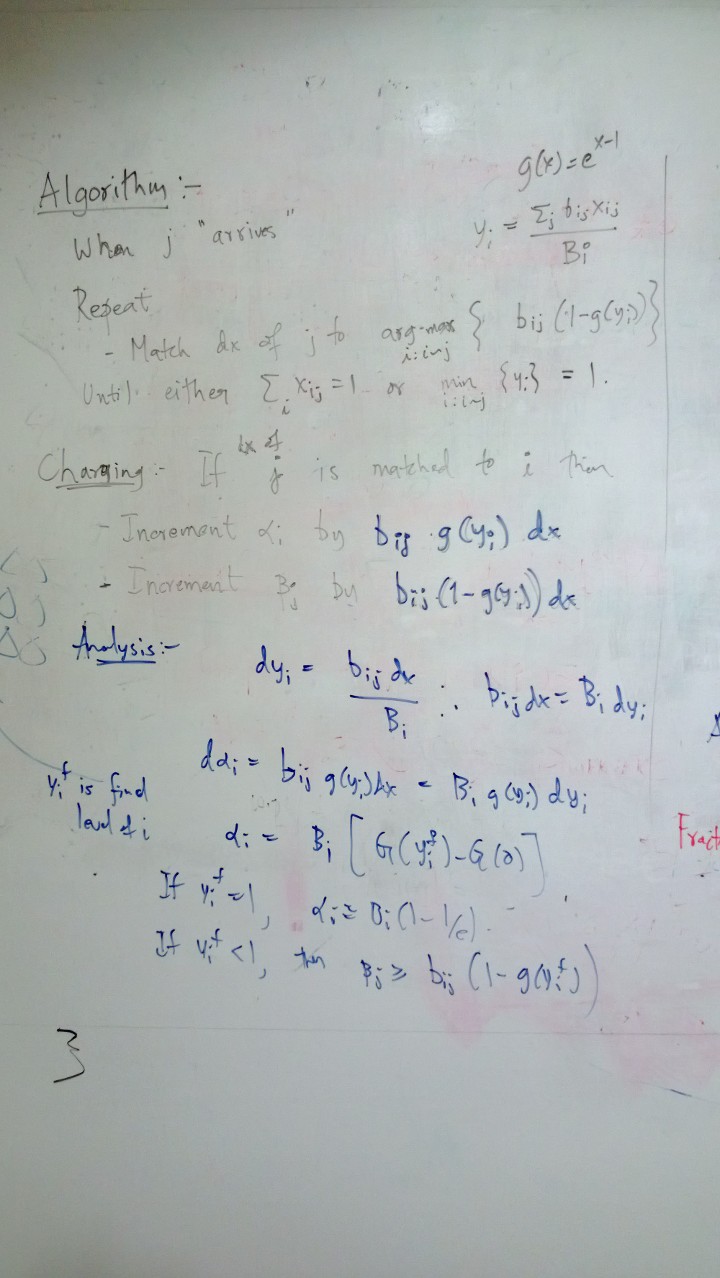 Algorithm :-
g(x) = e^{x-1}
When j "arrives"
y_i = Σ_j b_ij x_ij / B_i
Repeat
- Match dx of j to arg-max_{i: i~j} { b_ij (1-g(y_i)) }
Until either Σ_i x_ij = 1 or min_{i: i~j} {y_i} = 1.
Charging :- If dx of j is matched to i then
- Increment α_i by b_ij g(y_i) dx
- Increment β_j by b_ij (1-g(y_i)) dx
Analysis :-
dy_i = b_ij dx / B_i ∴ b_ij dx = B_i dy_i
dα_i = b_ij g(y_i) dx = B_i g(y_i) dy_i
y_i^f is final level of i
α_i = B_i [ G(y_i^f) - G(0) ]
If y_i^f = 1, α_i = B_i (1 - 1/e)
If y_i^f < 1, then β_j ≥ b_ij (1 - g(y_i^f))
}